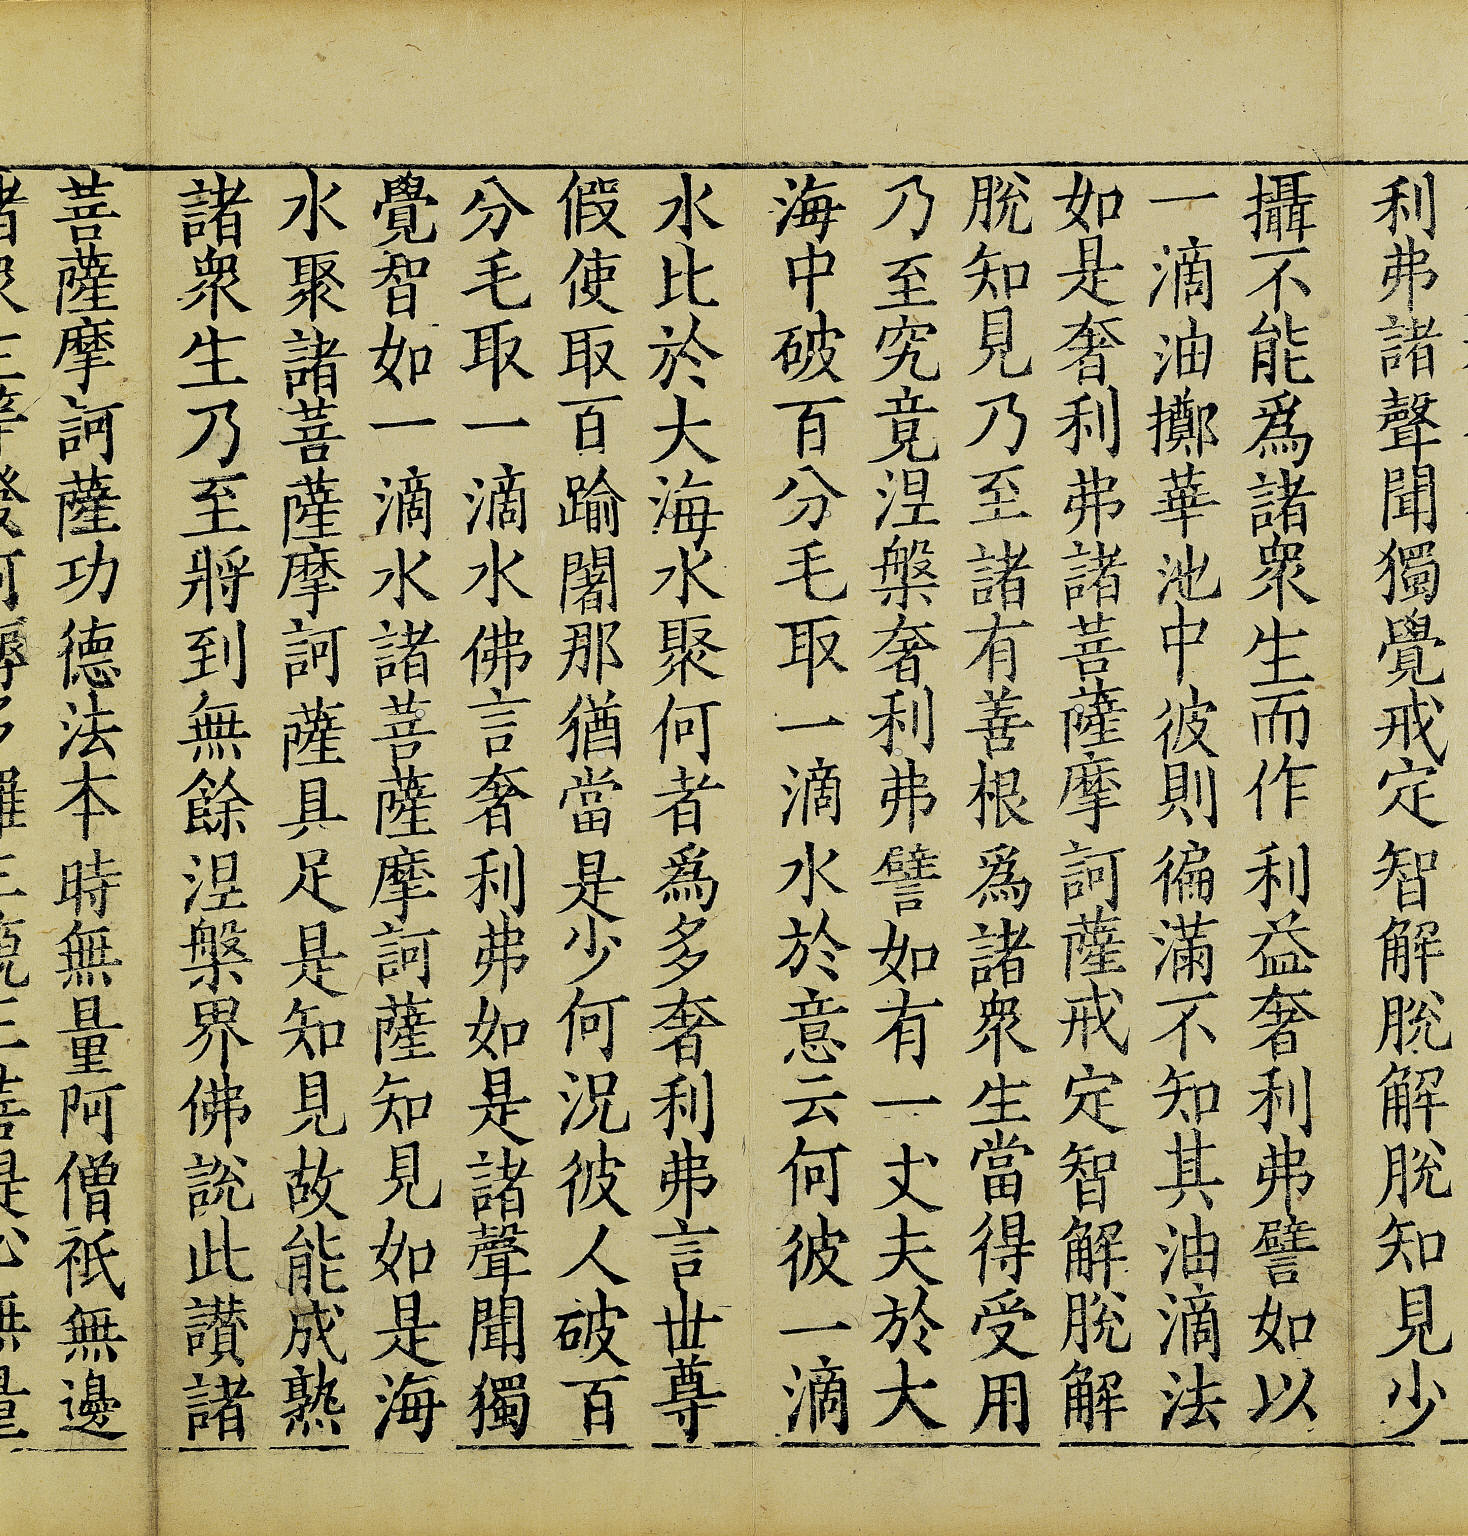 利弗諸聲聞獨覺戒定智解脫解脫知見少
攝不能爲諸衆生而作利益奢利弗譬如以
一滴油擲華池中彼則徧滿不知其油滴法
如是奢利弗諸菩薩摩訶薩戒定智解脫解
脫知見乃至諸有善根爲諸衆生當得受用
乃至究竟涅槃奢利弗譬如有一丈夫於大
海中破百分毛取一滴水於意云何彼一滴
水比於大海水聚何者爲多奢利弗言世尊
假使取百踰闍那猶當是少何況彼人破百
分毛取一滴水佛言奢利弗如是諸聲聞獨
覺智如一滴水諸菩薩摩訶薩知見如是海
水聚諸菩薩摩訶薩具足是知見故能成熟
諸衆生乃至將到無餘涅槃界佛說此讃諸
菩薩摩訶薩功德法本時無量阿僧祇無邊
諸衆生等發阿耨多羅三藐三菩提心無量